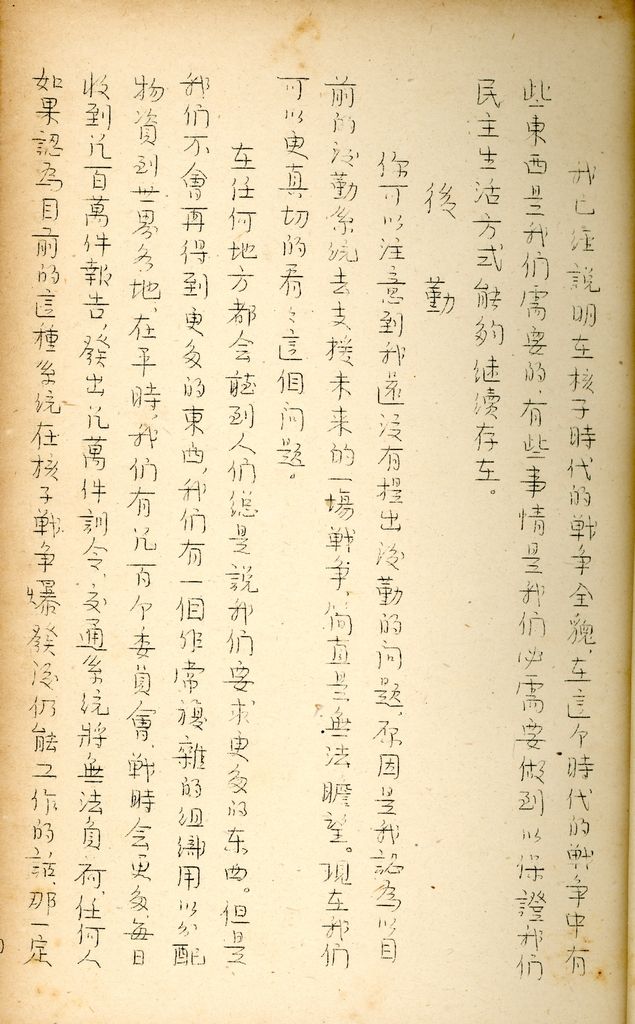 我已經說明在核子時代的戰争全貌，在這个時代的戰争中有
些東西是我们需要的，有些事情是我们必需要做到以保證我们
民主生活方式能夠继续存在。
後勤
你可以注意到我還没有提出後勤的问題，原因是我認為以目
前的後勤系統去支援未来的一場戰争，簡直是無法瞻望。现在我们
可以更真切的看々這個问題。
在任何地方都会聽到人们總是說我们要求更多的东西。但是
我们不會再得到更多的東西，我们有一個非常複雜的组織用以分配
物資到世界各地，在平時，我们有几百个委員會，戰時会更多，每日
收到几百萬件報告，發出几萬件訓令，交通系統將無法負荷，任何人
如果認為目前的這種系統在核子戰争爆發後仍能工作的話，那一定